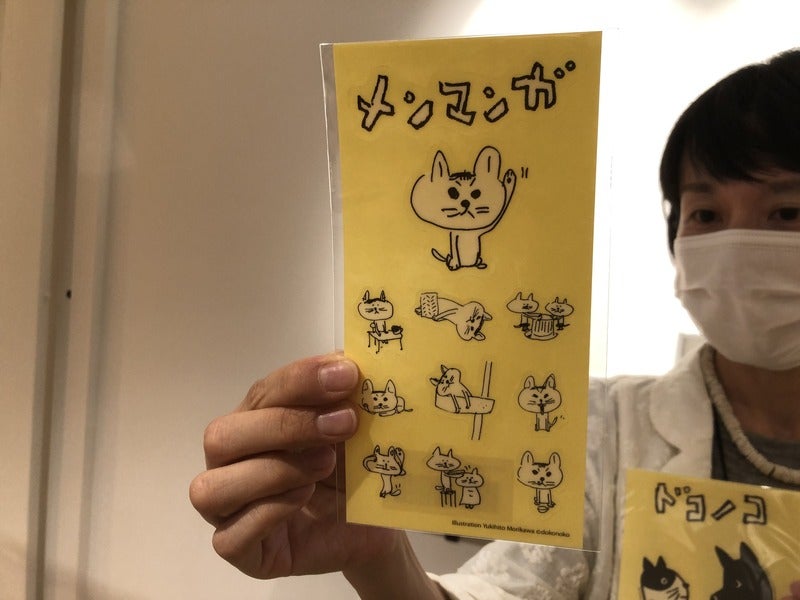 メンマンガ
Illustration Yukihito Morikawa ©dokonoko
ドコノコ